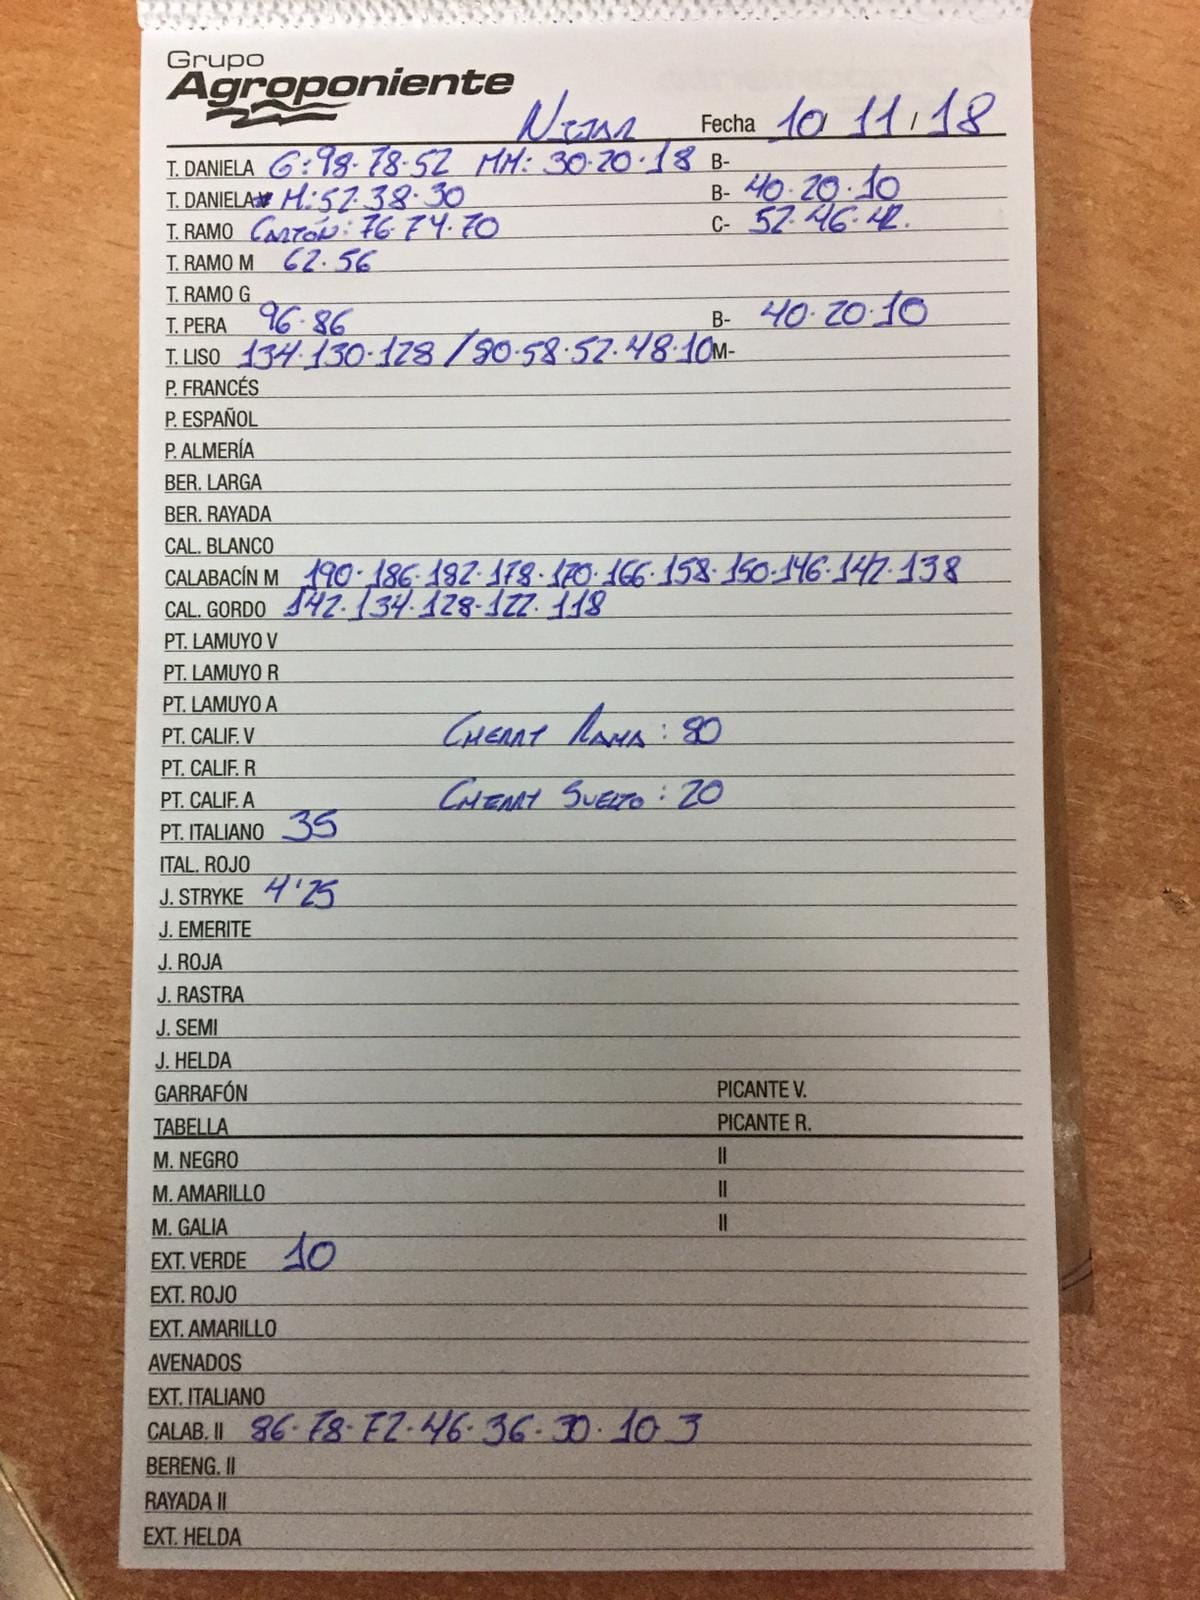 Grupo
Agroponiente
NIJAR Fecha 10/ 11 / 18
T. DANIELA G: 98-78-52 MM: 30-20-18 B-
T. DANIELA M: 52-38-30 B- 40-20-10
T. RAMO CARTÓN: 76-74-70 C- 52-46-42.
T. RAMO M 62-56
T. RAMO G
T. PERA 96-86 B- 40-20-10
T. LISO 134-130-128 / 80-58-52-48-10 M-
P. FRANCÉS
P. ESPAÑOL
P. ALMERÍA
BER. LARGA
BER. RAYADA
CAL. BLANCO
CALABACÍN M 190-186-182-178-170-166-158-150-146-142-138
CAL. GORDO 142-134-128-122-118
PT. LAMUYO V
PT. LAMUYO R
PT. LAMUYO A
PT. CALIF. V CHERRY RAMA: 80
PT. CALIF. R
PT. CALIF. A CHERRY SUELTO: 20
PT. ITALIANO 35
ITAL. ROJO
J. STRYKE 4'25
J. EMERITE
J. ROJA
J. RASTRA
J. SEMI
J. HELDA
GARRAFÓN PICANTE V.
TABELLA PICANTE R.
M. NEGRO II
M. AMARILLO II
M. GALIA II
EXT. VERDE 10
EXT. ROJO
EXT. AMARILLO
AVENADOS
EXT. ITALIANO
CALAB. II 86-78-72-46-36-30-10-3
BERENG. II
RAYADA II
EXT. HELDA